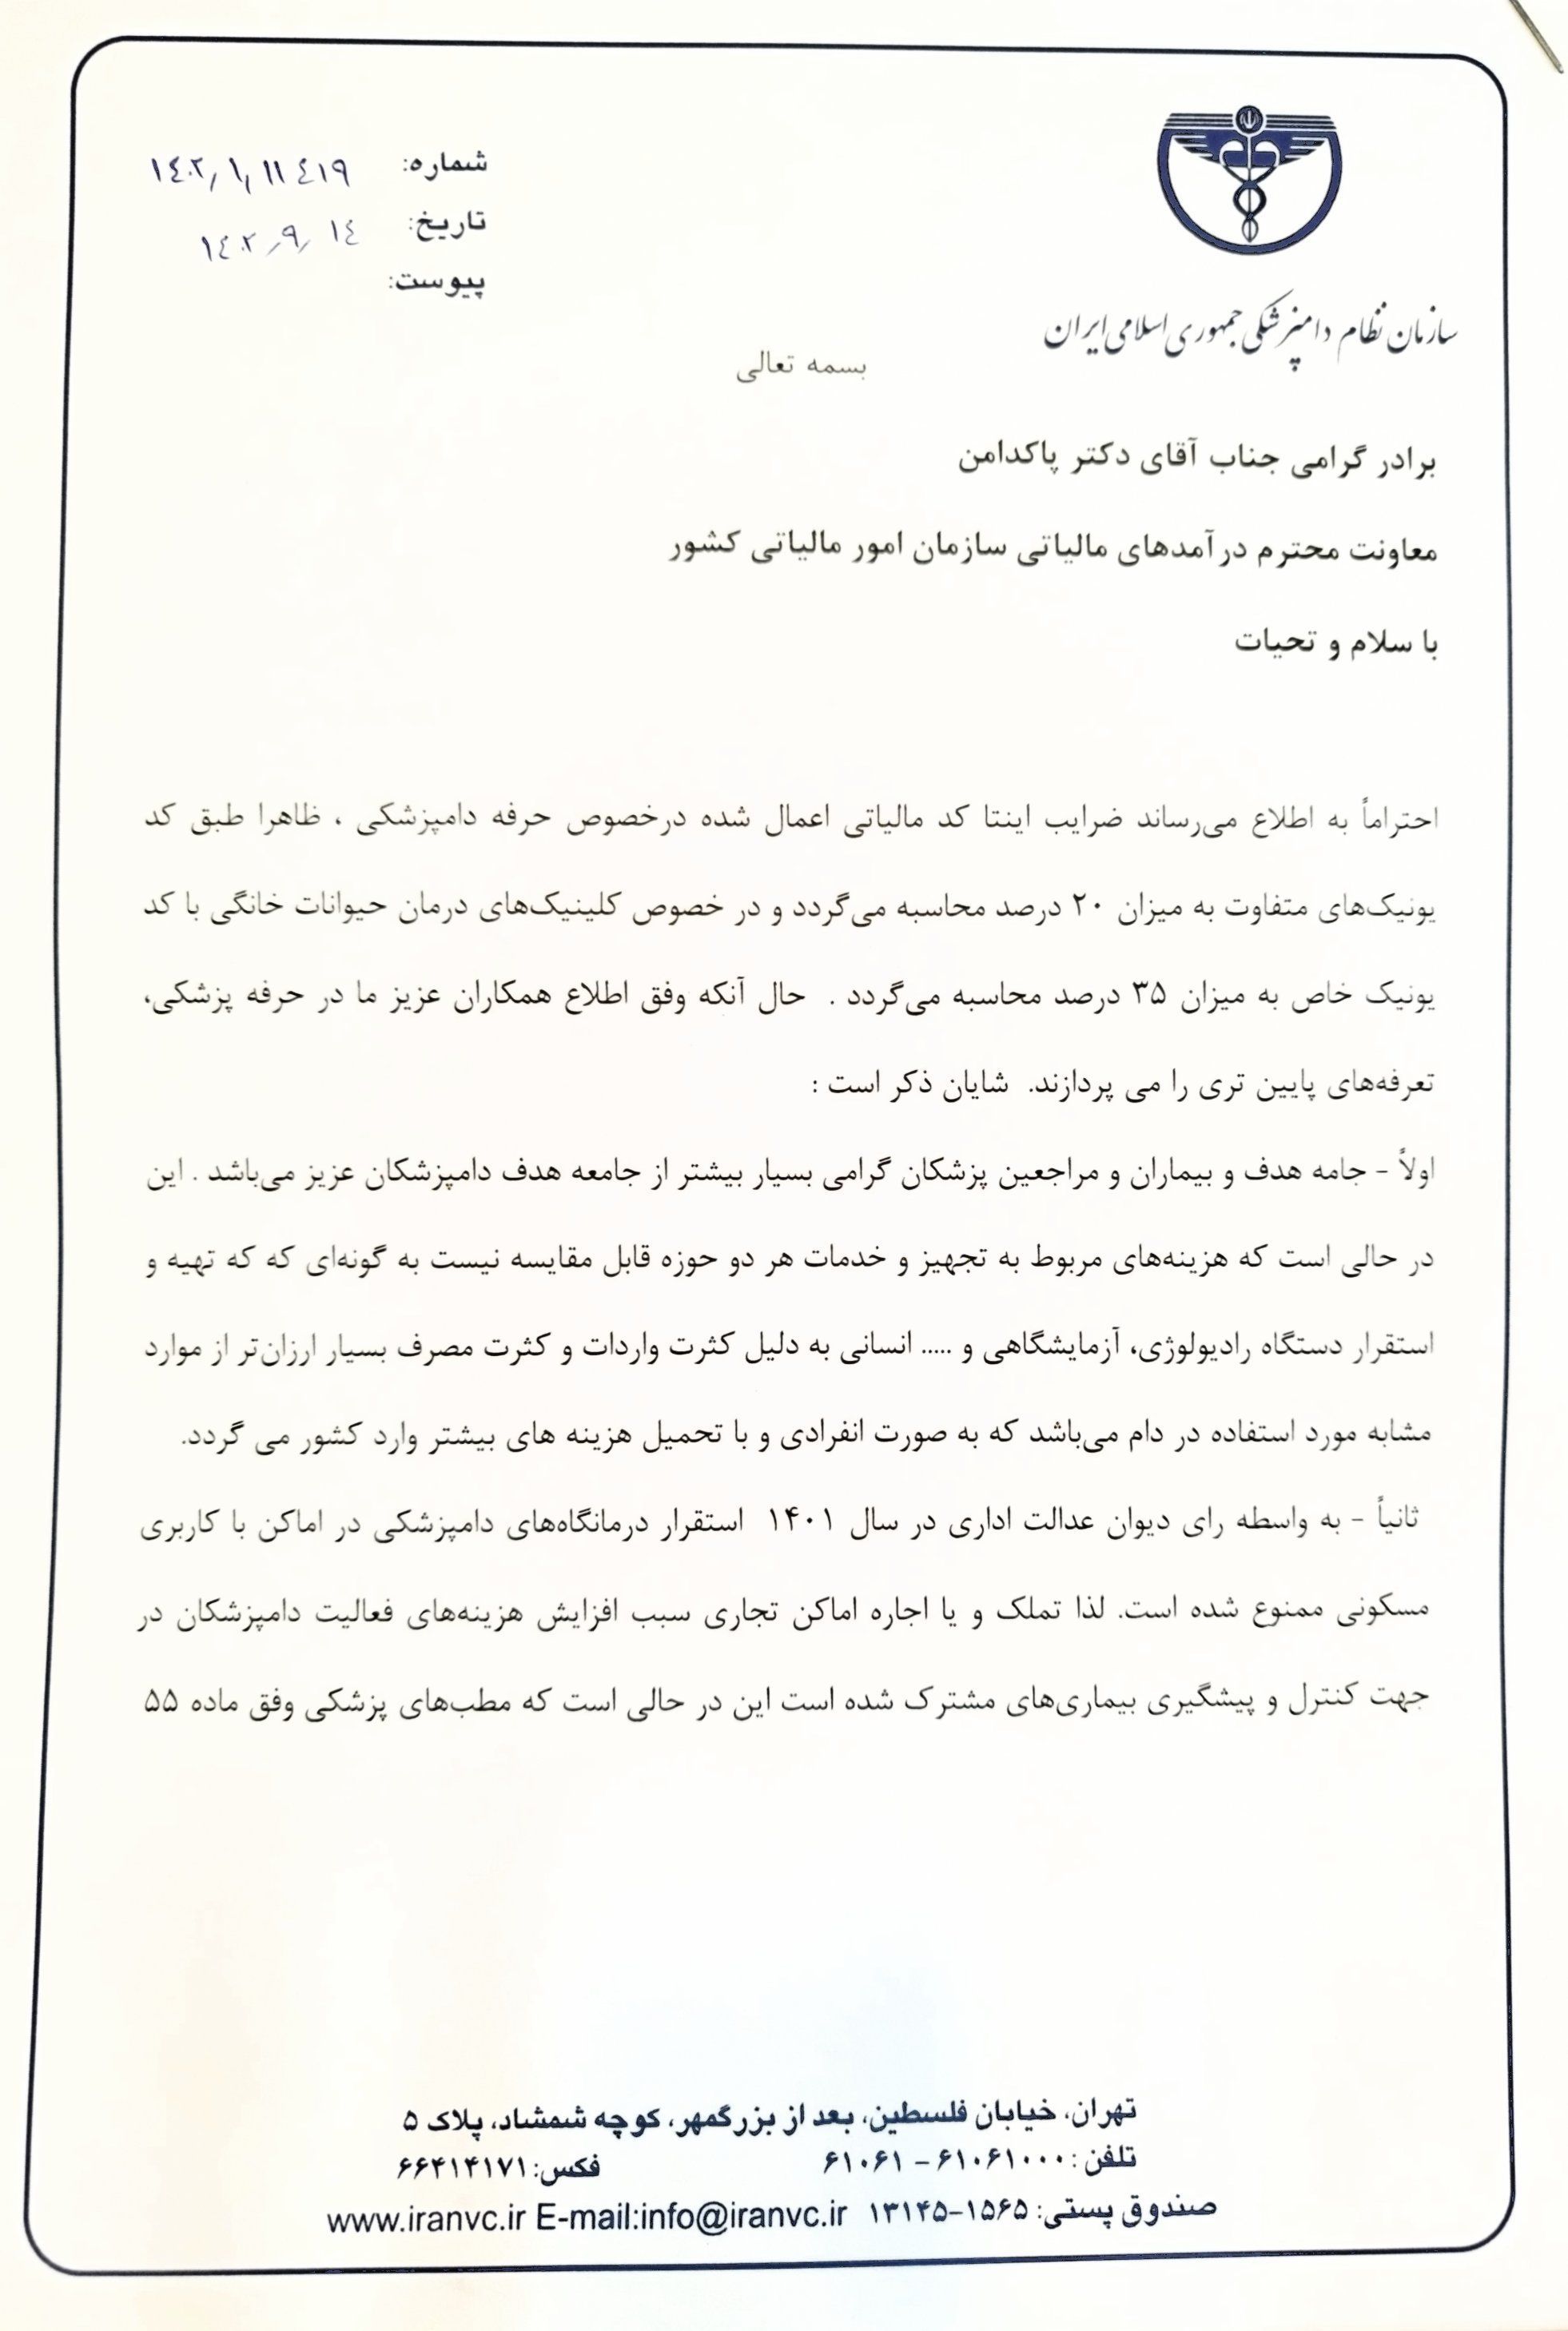 شماره: ۱۴۰۲/۱/۱۱۴۱۹
تاریخ: ۱۴۰۲/۹/۱۴
پیوست:
سازمان نظام دامپزشکی جمهوری اسلامی ایران
بسمه تعالی
برادر گرامی جناب آقای دکتر پاکدامن
معاونت محترم درآمدهای مالیاتی سازمان امور مالیاتی کشور
با سلام و تحیات
احتراماً به اطلاع می‌رساند ضرایب اینتا کد مالیاتی اعمال شده درخصوص حرفه دامپزشکی ، ظاهرا طبق کد
یونیک‌های متفاوت به میزان ۲۰ درصد محاسبه می‌گردد و در خصوص کلینیک‌های درمان حیوانات خانگی با کد
یونیک خاص به میزان ۳۵ درصد محاسبه می‌گردد . حال آنکه وفق اطلاع همکاران عزیز ما در حرفه پزشکی،
تعرفه‌های پایین تری را می پردازند. شایان ذکر است :
اولاً - جامه هدف و بیماران و مراجعین پزشکان گرامی بسیار بیشتر از جامعه هدف دامپزشکان عزیز می‌باشد . این
در حالی است که هزینه‌های مربوط به تجهیز و خدمات هر دو حوزه قابل مقایسه نیست به گونه‌ای که که تهیه و
استقرار دستگاه رادیولوژی، آزمایشگاهی و ..... انسانی به دلیل کثرت واردات و کثرت مصرف بسیار ارزان‌تر از موارد
مشابه مورد استفاده در دام می‌باشد که به صورت انفرادی و با تحمیل هزینه های بیشتر وارد کشور می گردد.
ثانیاً - به واسطه رای دیوان عدالت اداری در سال ۱۴۰۱ استقرار درمانگاه‌های دامپزشکی در اماکن با کاربری
مسکونی ممنوع شده است. لذا تملک و یا اجاره اماکن تجاری سبب افزایش هزینه‌های فعالیت دامپزشکان در
جهت کنترل و پیشگیری بیماری‌های مشترک شده است این در حالی است که مطب‌های پزشکی وفق ماده ۵۵
تهران، خیابان فلسطین، بعد از بزرگمهر، کوچه شمشاد، پلاک ۵
تلفن : ۶۱۰۶۱۰۰۰ - ۶۱۰۶۱ فکس: ۶۶۴۱۴۱۷۱
صندوق پستی: ۱۵۶۵-۱۳۱۴۵ www.iranvc.ir E-mail:info@iranvc.ir